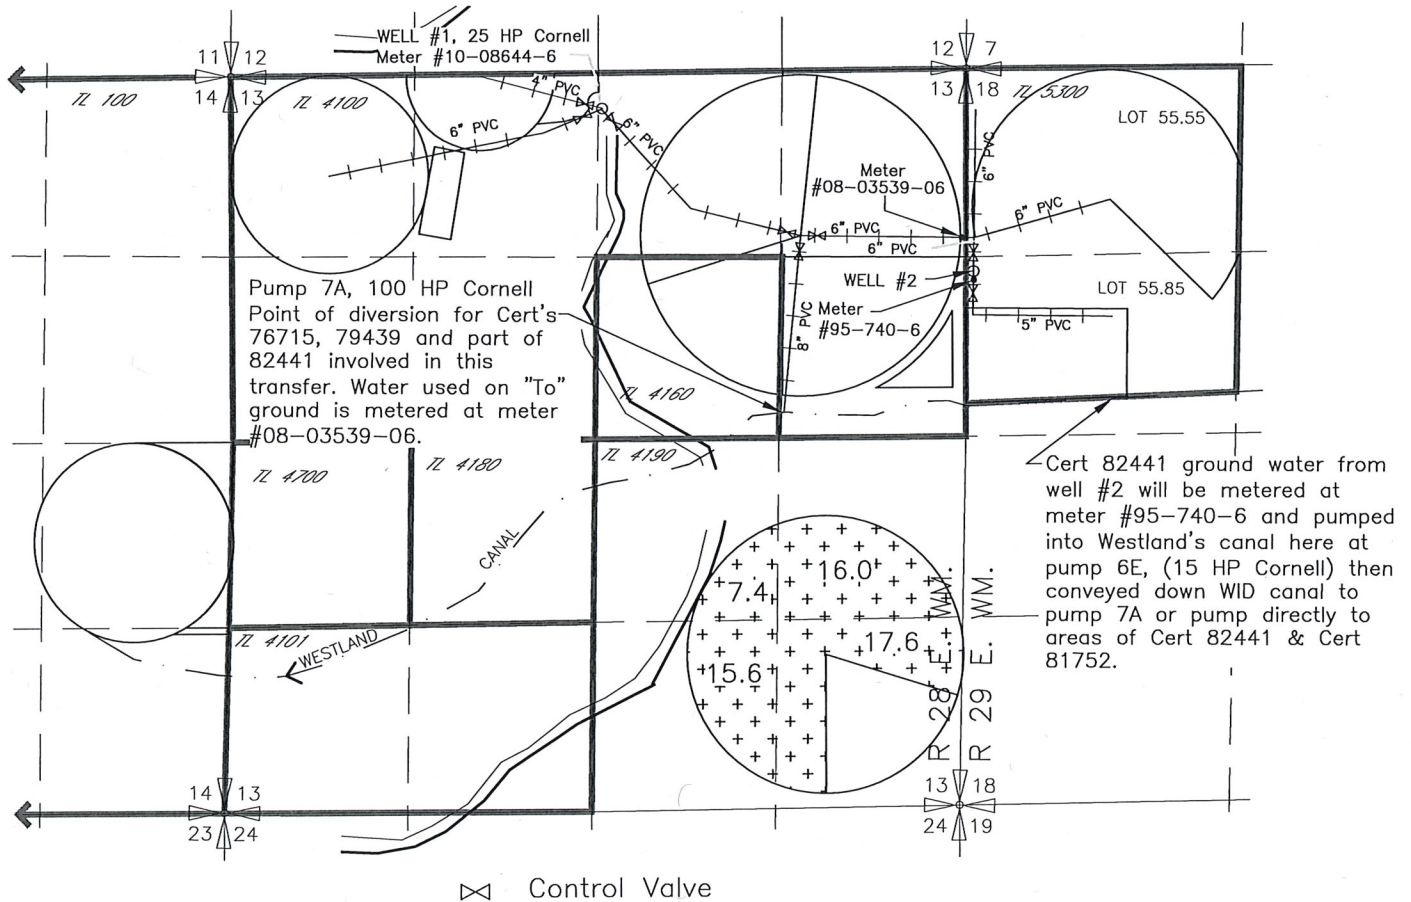 WELL #1, 25 HP Cornell
Meter #10-08644-6
11 12
14 13
12 7
13 18
TL 100
TL 4100
TL 5300
LOT 55.55
4" PVC
6" PVC
6" PVC
6" PVC
Meter
#08-03539-06
6" PVC
6" PVC
6" PVC
WELL #2
Meter
#95-740-6
8" PVC
LOT 55.85
5" PVC
Pump 7A, 100 HP Cornell
Point of diversion for Cert's
76715, 79439 and part of
82441 involved in this
transfer. Water used on "To"
ground is metered at meter
#08-03539-06.
TL 4160
TL 4700
TL 4180
TL 4190
CANAL
WESTLAND
TL 4101
Cert 82441 ground water from
well #2 will be metered at
meter #95-740-6 and pumped
into Westland's canal here at
pump 6E, (15 HP Cornell) then
conveyed down WID canal to
pump 7A or pump directly to
areas of Cert 82441 & Cert
81752.
7.4
16.0
17.6
15.6
R 28 E. WM.
R 29 E. WM.
14 13
23 24
13 18
24 19
Control Valve